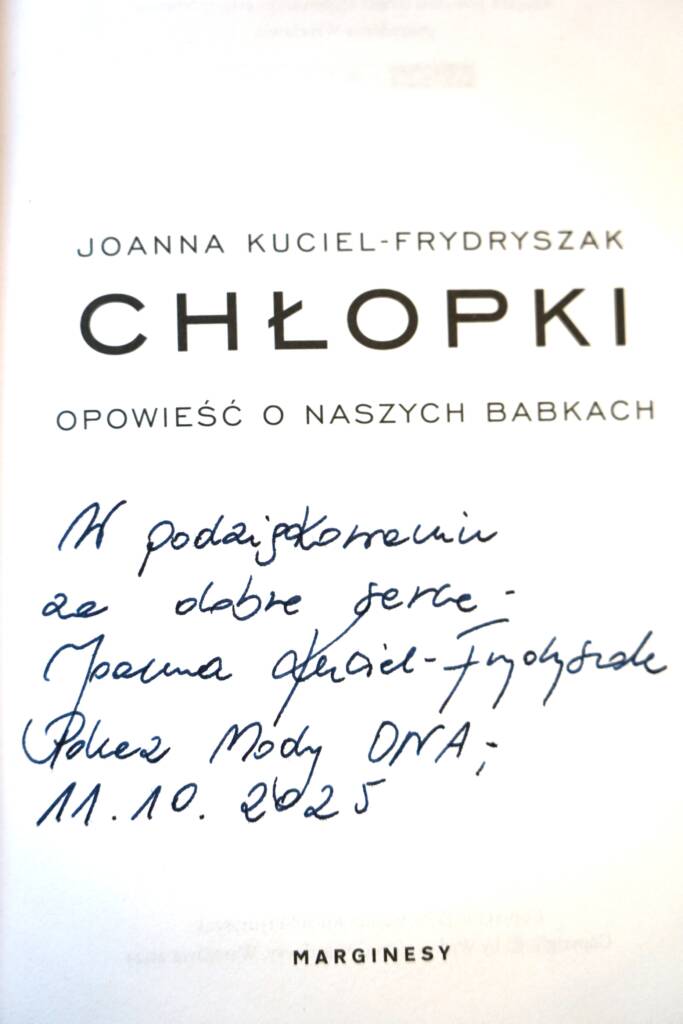 JOANNA KUCIEL-FRYDRYSZAK
CHŁOPKI
OPOWIEŚĆ O NASZYCH BABKACH
W podziękowaniu
za dobre serce -
Joanna Kuciel-Frydryszak
Pokaz Mody DNA,
11.10.2025
MARGINESY